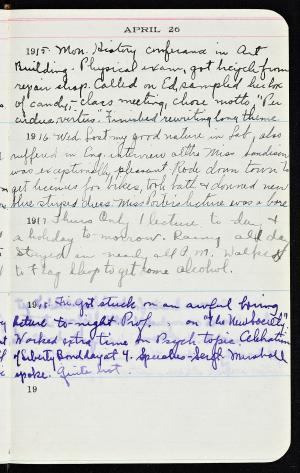 APRIL 26
1915 Mon. History conference in Art
Building. Physical exam, got bicycle from
repair shop. Called on Ed, sampled her box
of candy, - class meeting, chose motto, "Per
ardua virtus. Finished rewriting long theme
1916 Wed Lost my good nature in Lab, also
suffered in Eng. interview altho Miss
was exceptionally pleasant. Rode down town to
get licenses for bikes, took bath & donned new
blue striped dress. lecture was a bore
1917 Thurs Only 1 lecture to-day &
a holiday to-morrow. Rainy all day
Stayed in nearly all P.M. Walked
to Flag Shop to get some alcohol.
1918 Fri. Got stuck on an awful boring
lecture to-night Prof. on "The New Society".
Worked extra time on Psych topic. Celebration
of Liberty Bond day at 4. Speaker - Sergt Marshall
spoke. Quite hot.
19